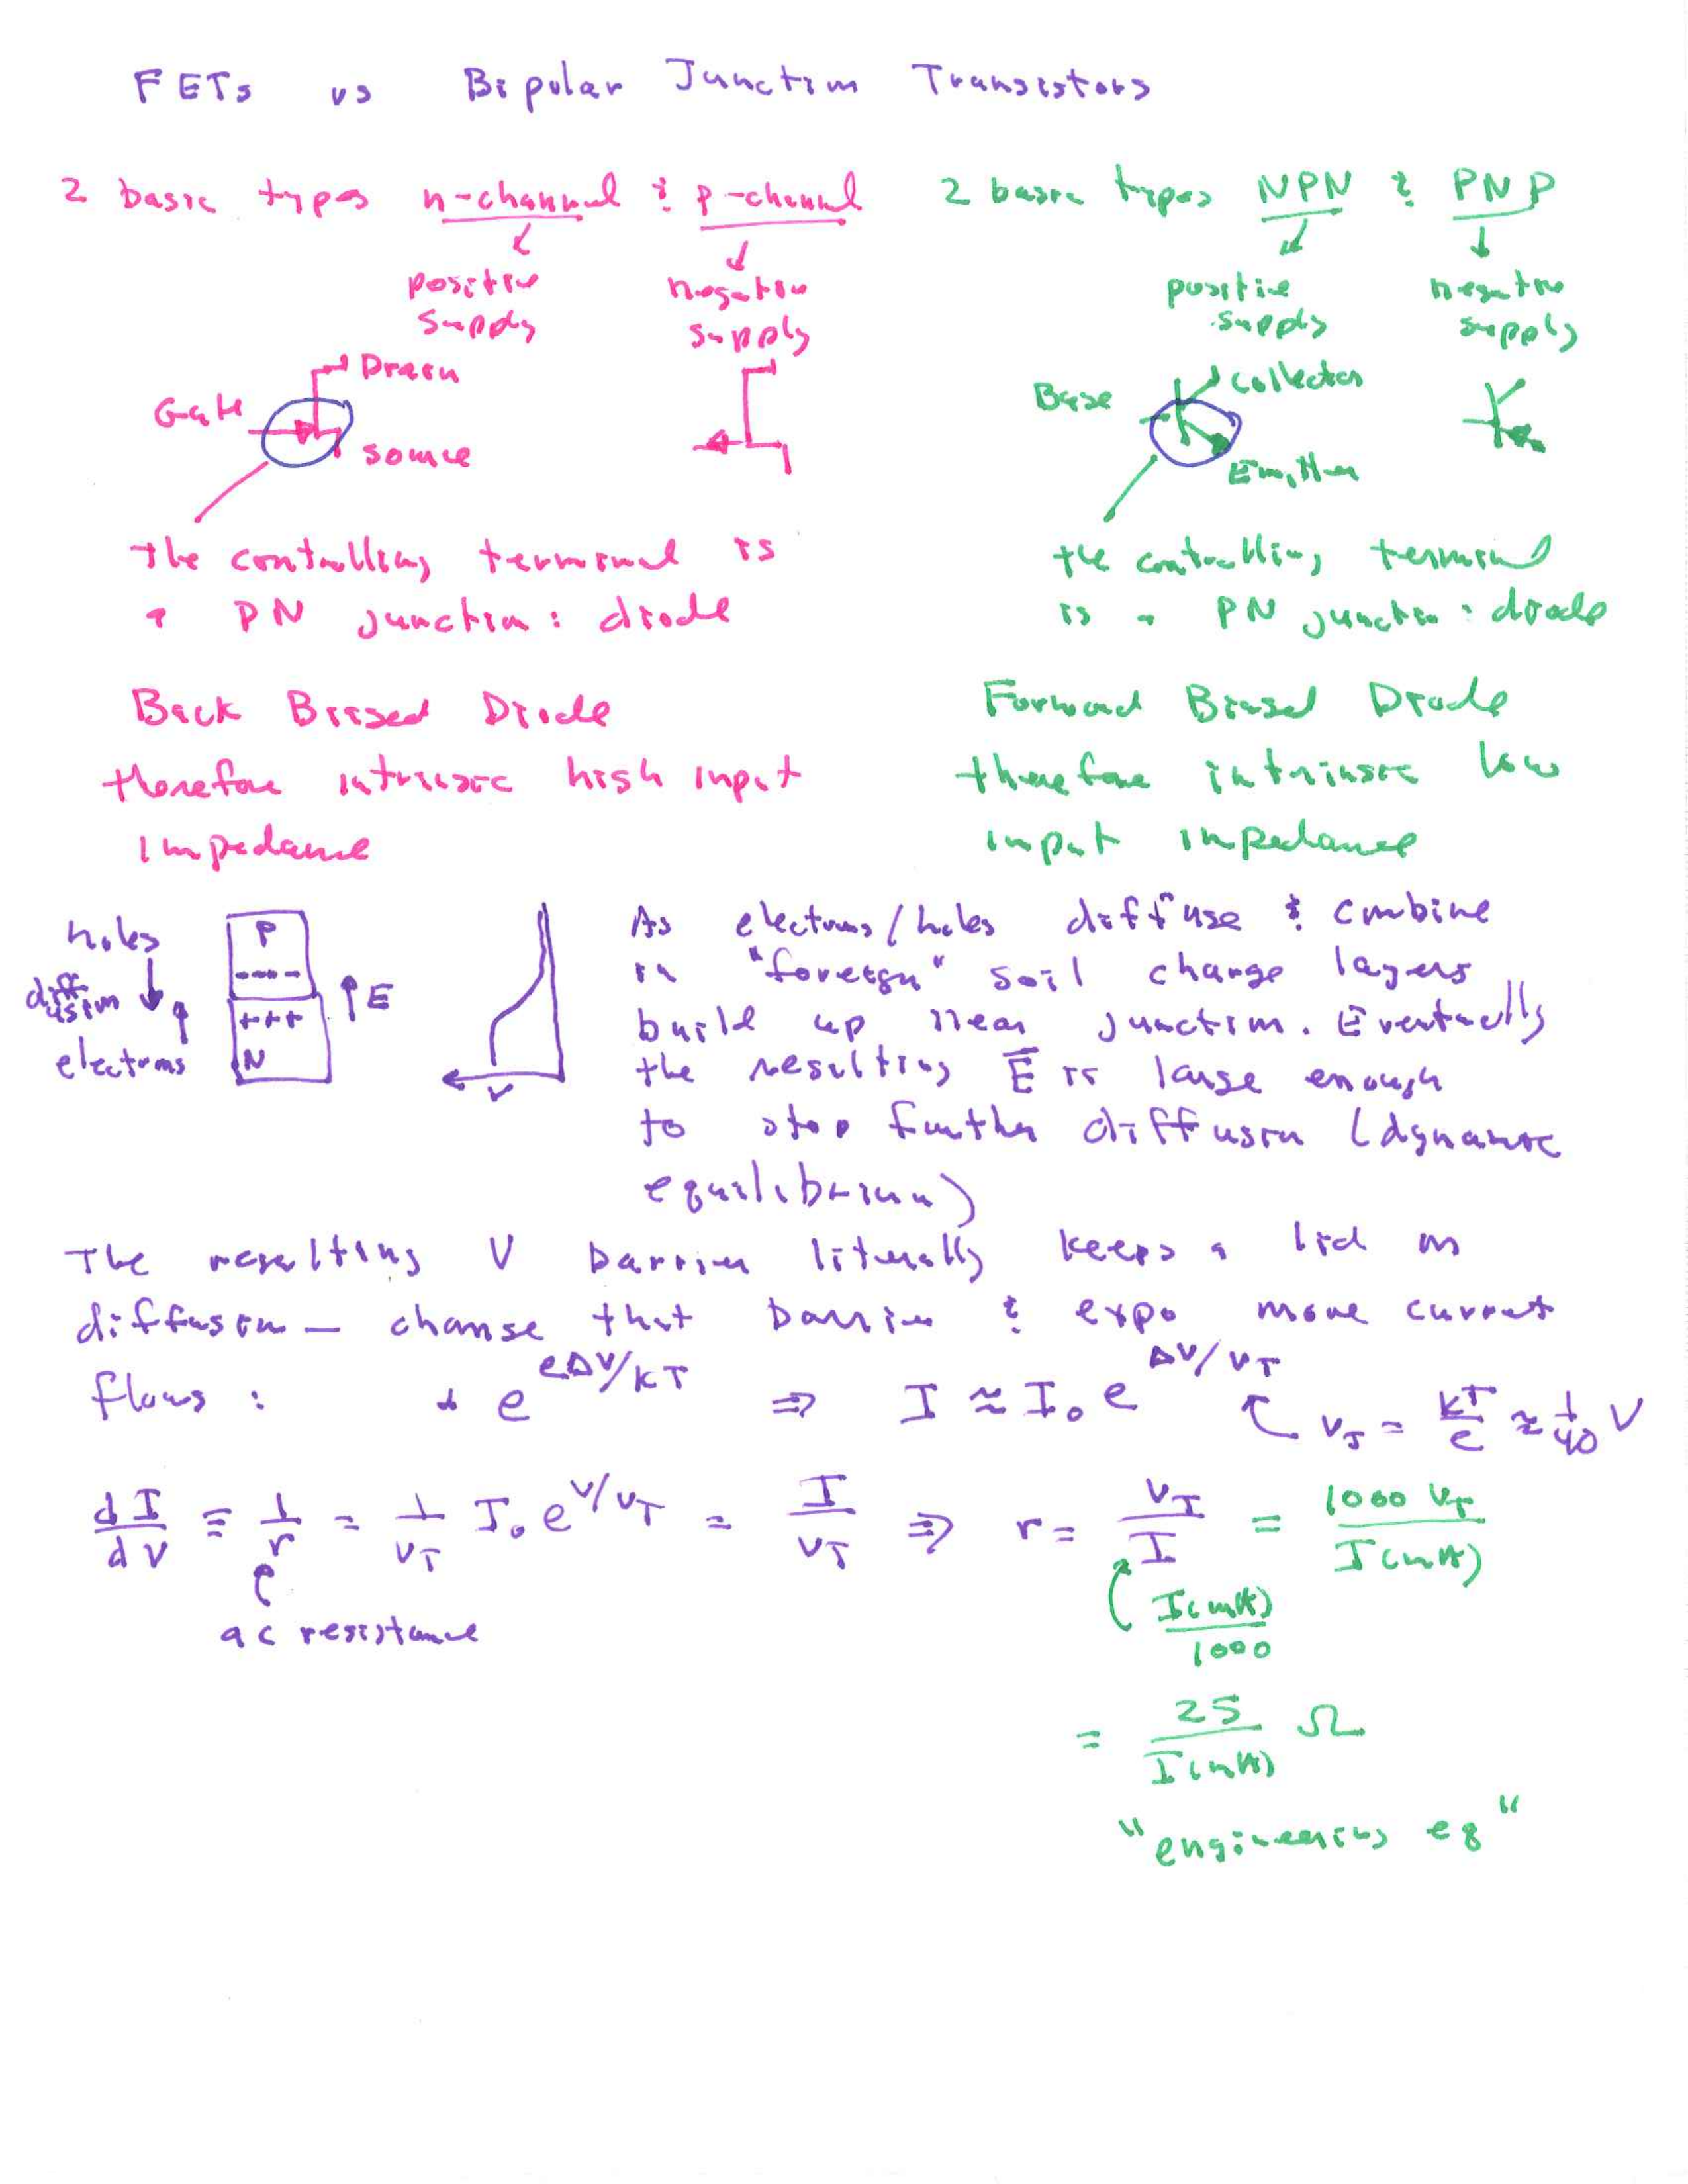 FETs vs Bipolar Junction Transistors
2 basic types n-channel & p-channel
positive supply
negative supply
Drain
Gate
source
the controlling terminal is
a PN junction: diode
Back Biased Diode
therefore intrinsic high input
impedance
2 basic types NPN & PNP
positive supply
negative supply
Collector
Base
Emitter
the controlling terminal
is a PN junction: diode
Forward Biased Diode
therefore intrinsic low
input impedance
holes
diffusion
electrons
P
----
+++
N
E
V
As electrons/holes diffuse & combine
in "foreign" soil charge layers
build up near junction. Eventually
the resulting E is large enough
to stop further diffusion (dynamic
equilibrium)
The resulting V barrier literally keeps a lid on
diffusion — change that barrier & expo more current
flows: α e^{eΔV/kT} ⇒ I ≈ I₀ e^{ΔV/V_T} V_T = kT/e ≈ 1/40 V
dI/dV ≡ 1/r = 1/V_T I₀ e^{V/V_T} = I/V_T ⇒ r = V_T/I = 1000 V_T/I(mA)
ac resistance
I(mA)/1000
= 25/I(mA) Ω
"engineering eq"